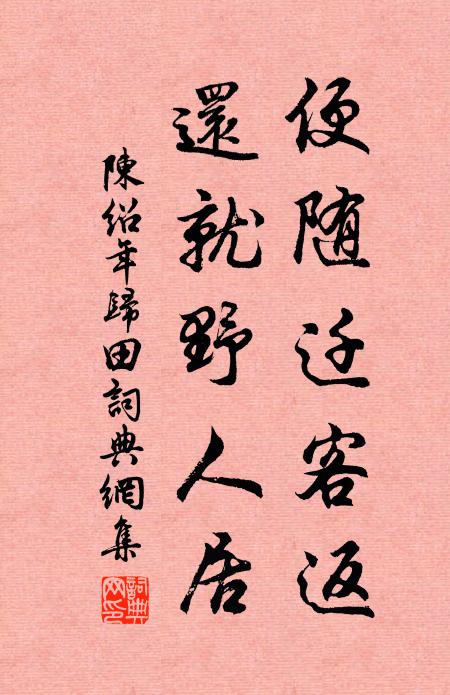 便随迁客返
還就野人居
陳紹年歸田詞典網集
詞典網印